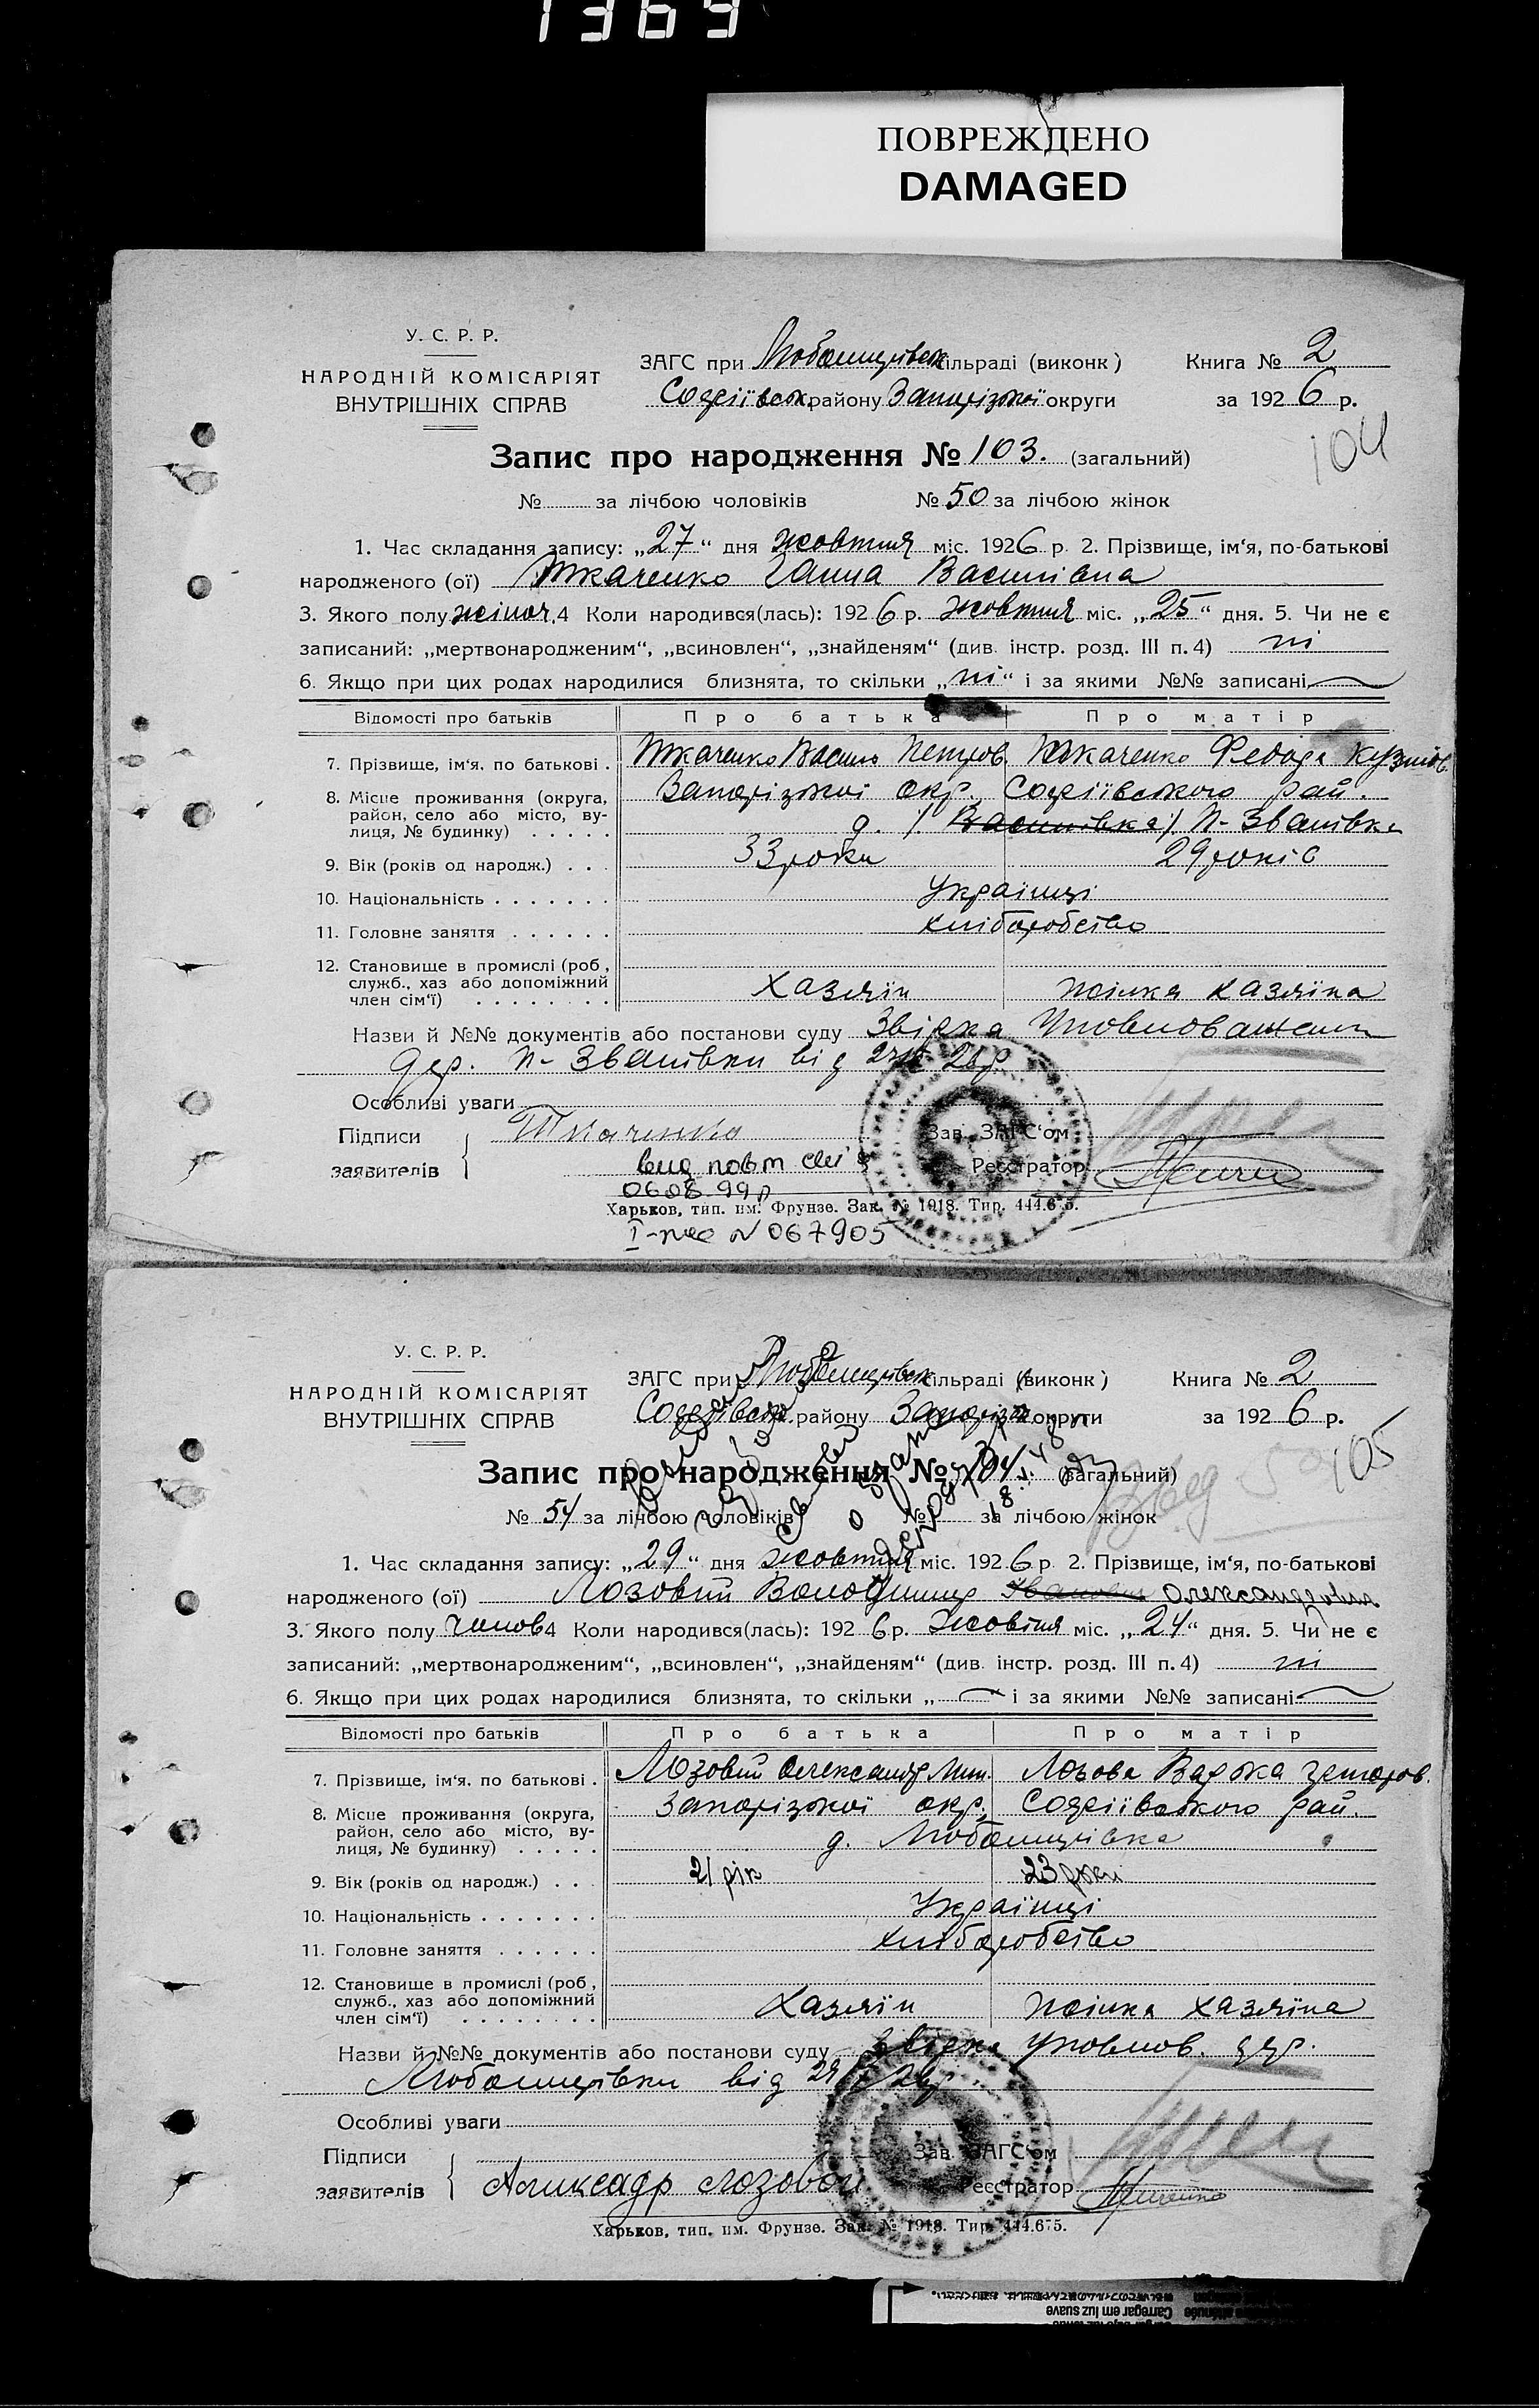 1369
ПОВРЕЖДЕНО
DAMAGED
У. С. Р. Р.
НАРОДНІЙ КОМІСАРІЯТ
ВНУТРІШНІХ СПРАВ
ЗАГС при Любомирівськ сільраді (виконк) Книга № 2
Софіївськ. району Запорізької округи за 1926 р.
104
Запис про народження № 103. (загальний)
№ за лічбою чоловіків № 50 за лічбою жінок
1. Час складання запису: „27“ дня жовтня міс. 1926 р. 2. Прізвище, ім‘я, по-батькові
народженого (ої) Ткаченко Ганна Василівна
3. Якого полу жіноч. 4 Коли народився(лась): 1926 р. жовтня міс. „25“ дня. 5. Чи не є
записаний: „мертвонародженим“, „всиновлен“, „знайденям“ (див. інстр. розд. III п. 4) ні
6. Якщо при цих родах народилися близнята, то скільки „ні“ і за якими №№ записані
Відомості про батьків Про батька Про матір
7. Прізвище, ім‘я. по батькові . Ткаченко Василь Петров. Ткаченко Федора Кузмів.
8. Місце проживання (округа, район, село або місто, вулиця, № будинку) . . . . . Запорізької окр. Софіївського рай.
д. /Василівка/ П-Званівка
9. Вік (років од народж.) . . . 33 роки 29 років
10. Національність . . . . . . . Українці
11. Головне заняття . . . . . . хліборобство
12. Становище в промислі (роб., служб., хаз або допоміжний член сім‘ї) . . . . . . . . Хазяїн жінка хазяїна
Назви й №№ документів або постанови суду Звірка Уповноважен
дер. П-Званівки від 27/X 26 р.
Особливі уваги
Підписи Ткаченко Зав. ЗАГС‘ом
заявителів вид повт свід Реєстратор
06.08.99р
Харьков, тип. им. Фрунзе. Зак. № 1918. Тир. 444.675.
І-жс N 067905
У. С. Р. Р.
НАРОДНІЙ КОМІСАРІЯТ
ВНУТРІШНІХ СПРАВ
ЗАГС при Любомирівськ сільраді (виконк) Книга № 2
Софіївськ. району Запоріз округи за 1926 р.
105
Запис про народження № 104. (загальний)
№ 54 за лічбою чоловіків № за лічбою жінок
1. Час складання запису: „29“ дня жовтня міс. 1926 р. 2. Прізвище, ім‘я, по-батькові
народженого (ої) Лозовий Володимир Іванович Олександрович
3. Якого полу чолов 4 Коли народився(лась): 1926 р. жовтня міс. „24“ дня. 5. Чи не є
записаний: „мертвонародженим“, „всиновлен“, „знайденям“ (див. інстр. розд. III п. 4) ні
6. Якщо при цих родах народилися близнята, то скільки „—“ і за якими №№ записані
Відомості про батьків Про батька Про матір
7. Прізвище, ім‘я. по батькові . Лозовий Олександр Мик. Лозова Варька Григоров.
8. Місце проживання (округа, район, село або місто, вулиця, № будинку) . . . . . Запорізької окр. Софіївського рай.
д. Любомирівка
9. Вік (років од народж.) . . . 21 рік 23 роки
10. Національність . . . . . . . Українці
11. Головне заняття . . . . . . хліборобство
12. Становище в промислі (роб., служб., хаз або допоміжний член сім‘ї) . . . . . . . . Хазяїн жінка хазяїна
Назви й №№ документів або постанови суду Звірка Уповнов. дер.
Любомирівки від 29/X 26 р.
Особливі уваги
Підписи Зав. ЗАГС‘ом
заявителів Аликсадр Лозовой Реєстратор
Харьков, тип. им. Фрунзе. Зак. № 1918. Тир. 444.675.
Carregar em luz suave